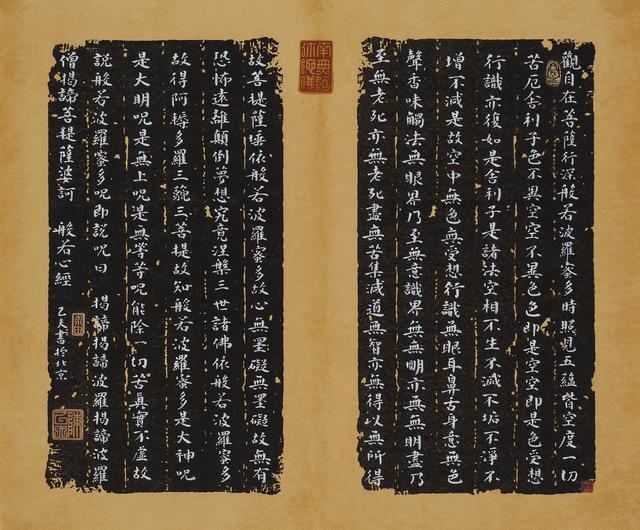 觀自在菩薩行深般若波羅蜜多時照見五蘊皆空度一切
苦厄舍利子色不異空空不異色色即是空空即是色受想
行識亦復如是舍利子是諸法空相不生不滅不垢不淨不
增不減是故空中無色無受想行識無眼耳鼻舌身意無色
聲香味觸法無眼界乃至無意識界無無明亦無無明盡乃
至無老死亦無老死盡無苦集滅道無智亦無得以無所得
南無阿彌陀佛
故菩提薩埵依般若波羅蜜多故心無罣礙無罣礙故無有
恐怖遠離顛倒夢想究竟涅槃三世諸佛依般若波羅蜜多
故得阿耨多羅三藐三菩提故知般若波羅蜜多是大神呪
是大明呪是無上呪是無等等呪能除一切苦真實不虛故
說般若波羅蜜多呪即說呪曰 揭諦揭諦波羅揭諦波羅
僧揭諦菩提薩婆訶 般若心經
書於北京